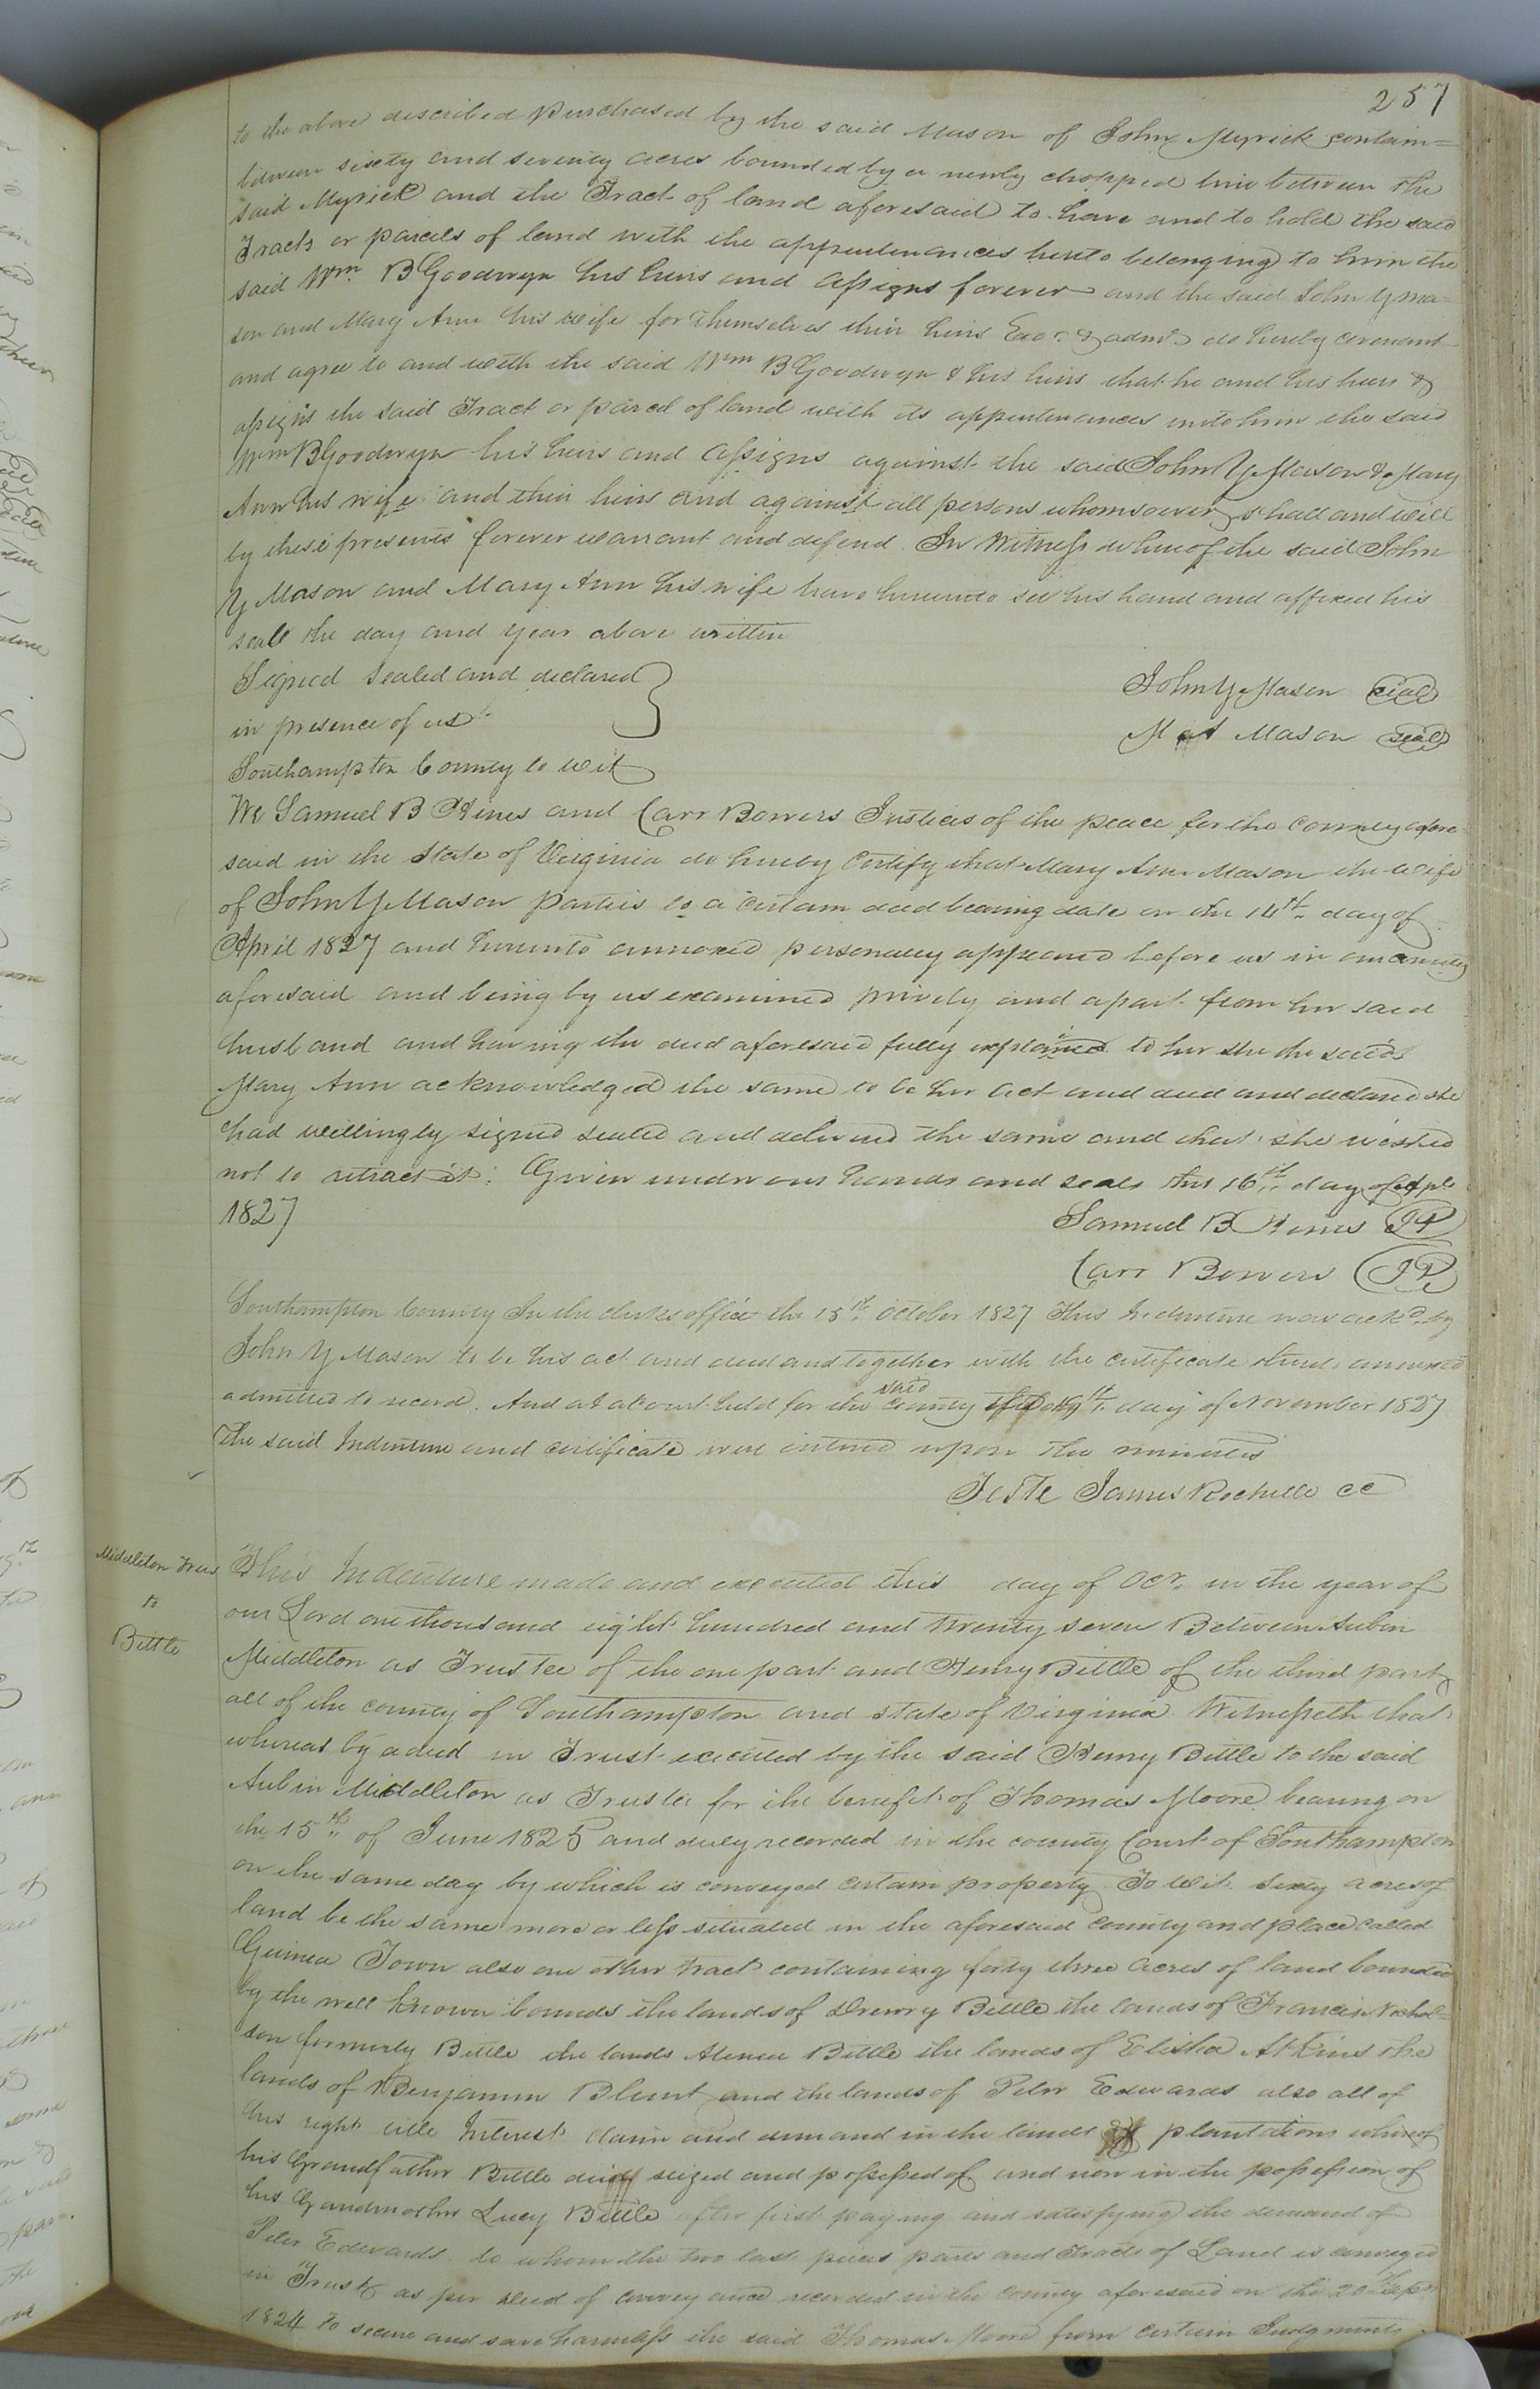 257
to the above described purchased by the said Mason of John Myrick contain=
between sixety and seventy acres bounded by a newly chopped line between the
said Myrick and the Tract of land aforesaid to have and to hold the said
Tracts or parcels of land with the appurtenances hereto belonging to him the
said Wm. B Goodwyn his heirs and assigns forever and the said John Y Ma=
son and Mary Ann his wife for themselves their heirs Exo.rs & adm.rs do hereby covenant
and agree to and with the said Wm B Goodwyn & his heirs that he and his heirs &
assigns the said Tract or parcel of land with its appurtenances unto him the said
Wm B Goodwyn his heirs and assigns against the said John Y Mason & Mary
Ann his wife and their heirs and against all persons whomsoever shall and will
by these presents forever warrant and defend. In Witness whereof the said John
Y Mason and Mary Ann his wife have hereunto set his hand and affixed his
seall the day and year above written
Signed Sealed and declared
in presence of us
John Y Mason seal
M A Mason seal
Southampton County to wit
We Samuel B Hines and Carr Bowers Justices of the peace for the county afore
said in the State of Virginia do hereby Certify that Mary Ann Mason the wife
of John Y Mason parties to a certain deed bearing date on the 14th day of
April 1827 and hereunto annexed personally appeared before us in our county
aforesaid and being by us examined privily and apart from her said
husband and having the deed aforesaid fully explained to her she the said
Mary Ann acknowledged the same to be her act and deed and declared she
had willingly signed sealed and delivered the same and that she wished
not to retract it. Given under our hands and seals this 16th day of Apl
1827
Samuel B Hines JP
Carr Bowers JP
Southampton County In the clerks office the 15th October 1827 This Indenture was ackd. by
John Y Mason to be his act and deed and together with the certificate annexed
admitted to record. And at a Court held for the said county the 19th day of November 1827
The said Indenture and certificate were entered upon the minutes
Teste James Rochelle CC
Middleton Trus
to
Bittle
This Indenture made and executed this day of Oct. in the year of
our Lord one thousand eight hundred and twenty seven Between Aubin
Middleton as Trustee of the one part and Henry Bittle of the third part
all of the county of Southampton and state of Virginia Witnesseth that
whereas by a deed in Trust executed by the said Henry Bittle to the said
Aubin Middleton as Trustee for the benefit of Thomas Moore bearing on
the 15th of June 1825 and duly recorded in the county Court of Southampton
on the same day by which is conveyed certain property To wit. Sixty acres of
land be the same more or less situated in the aforesaid county and place called
Guinea Town also one other tract containing forty three acres of land bounded
by the well known bounds the lands of Drewry Bittle the lands of Francis Nichol=
son formerly Bittle the lands Bittle the lands of Elisha Atkins the
lands of Benjamin Blunt and the lands of Peter Edwards also all of
his right title Interest claim and demand in the lands plantations whereof
his Grandfather Bittle seized and possessed of and now in the possession of
his Grandmother Lucy Bittle after first paying and satisfying the demand of
Peter Edwards to whom the two last pieces parts and Tracts of Land is conveyed
in Trust as per deed of conveyance recorded in the county aforesaid on the 20th Sept
1824 to secure and save harmless the said Thomas Moore from certain Judgments